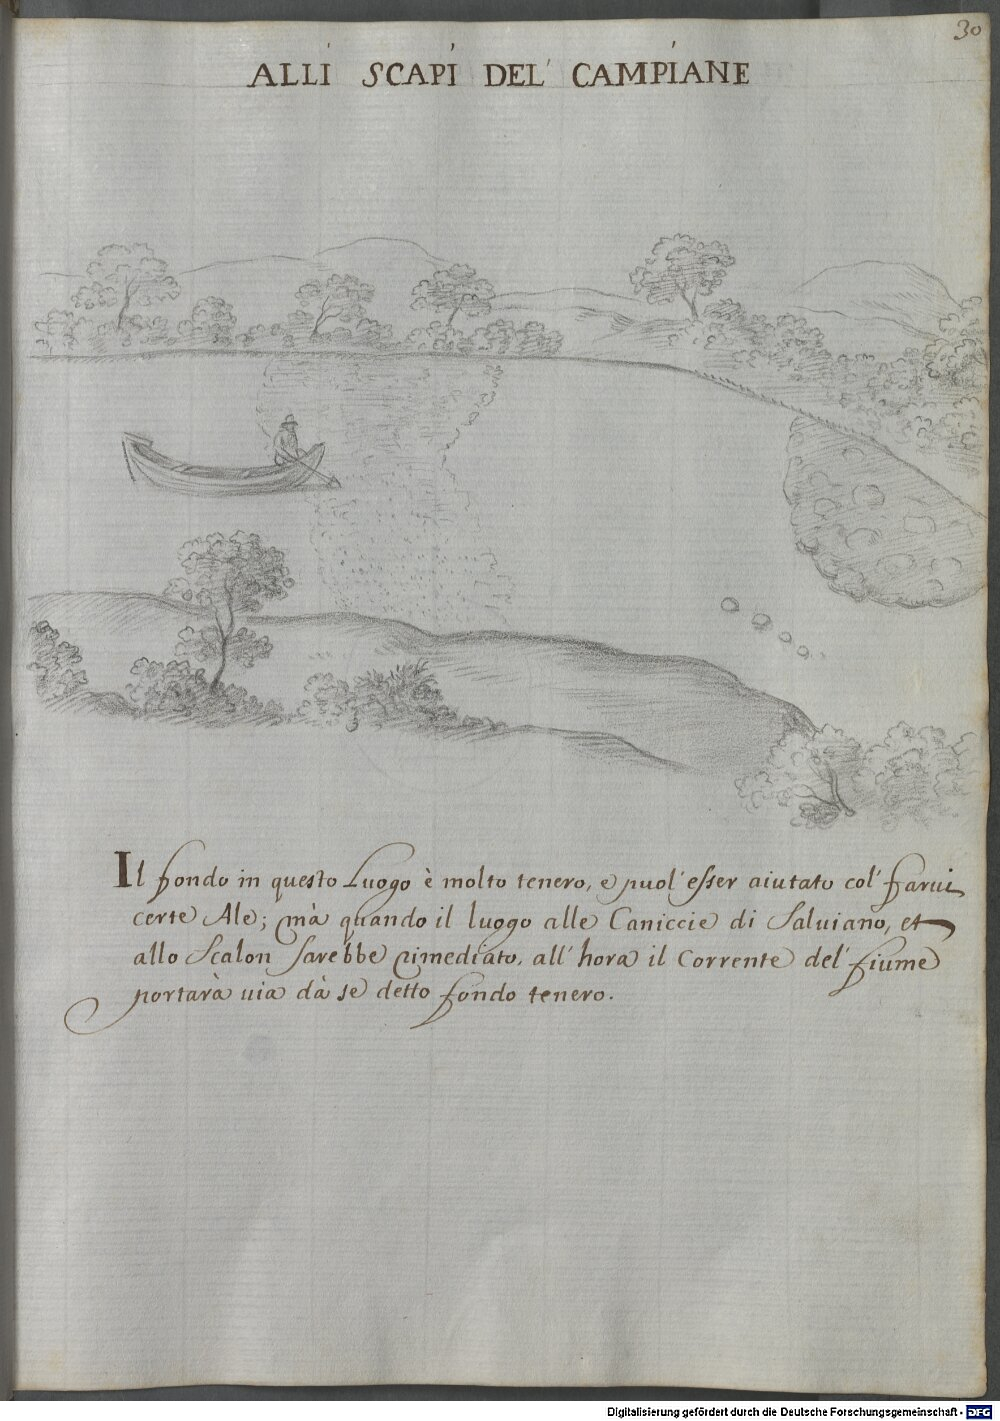 30
ALLI SCAPI DEL' CAMPIANE
Il fondo in questo Luogo è molto tenero, e puol' esser aiutato col' farui
certe Ale; mà quando il luogo alle Caniccie di Saluiano, et
allo Scalon sarebbe rimediato, all' hora il corrente del' fiume
portarà uia dà se detto fondo tenero.
Digitalisierung gefördert durch die Deutsche Forschungsgemeinschaft - DFG